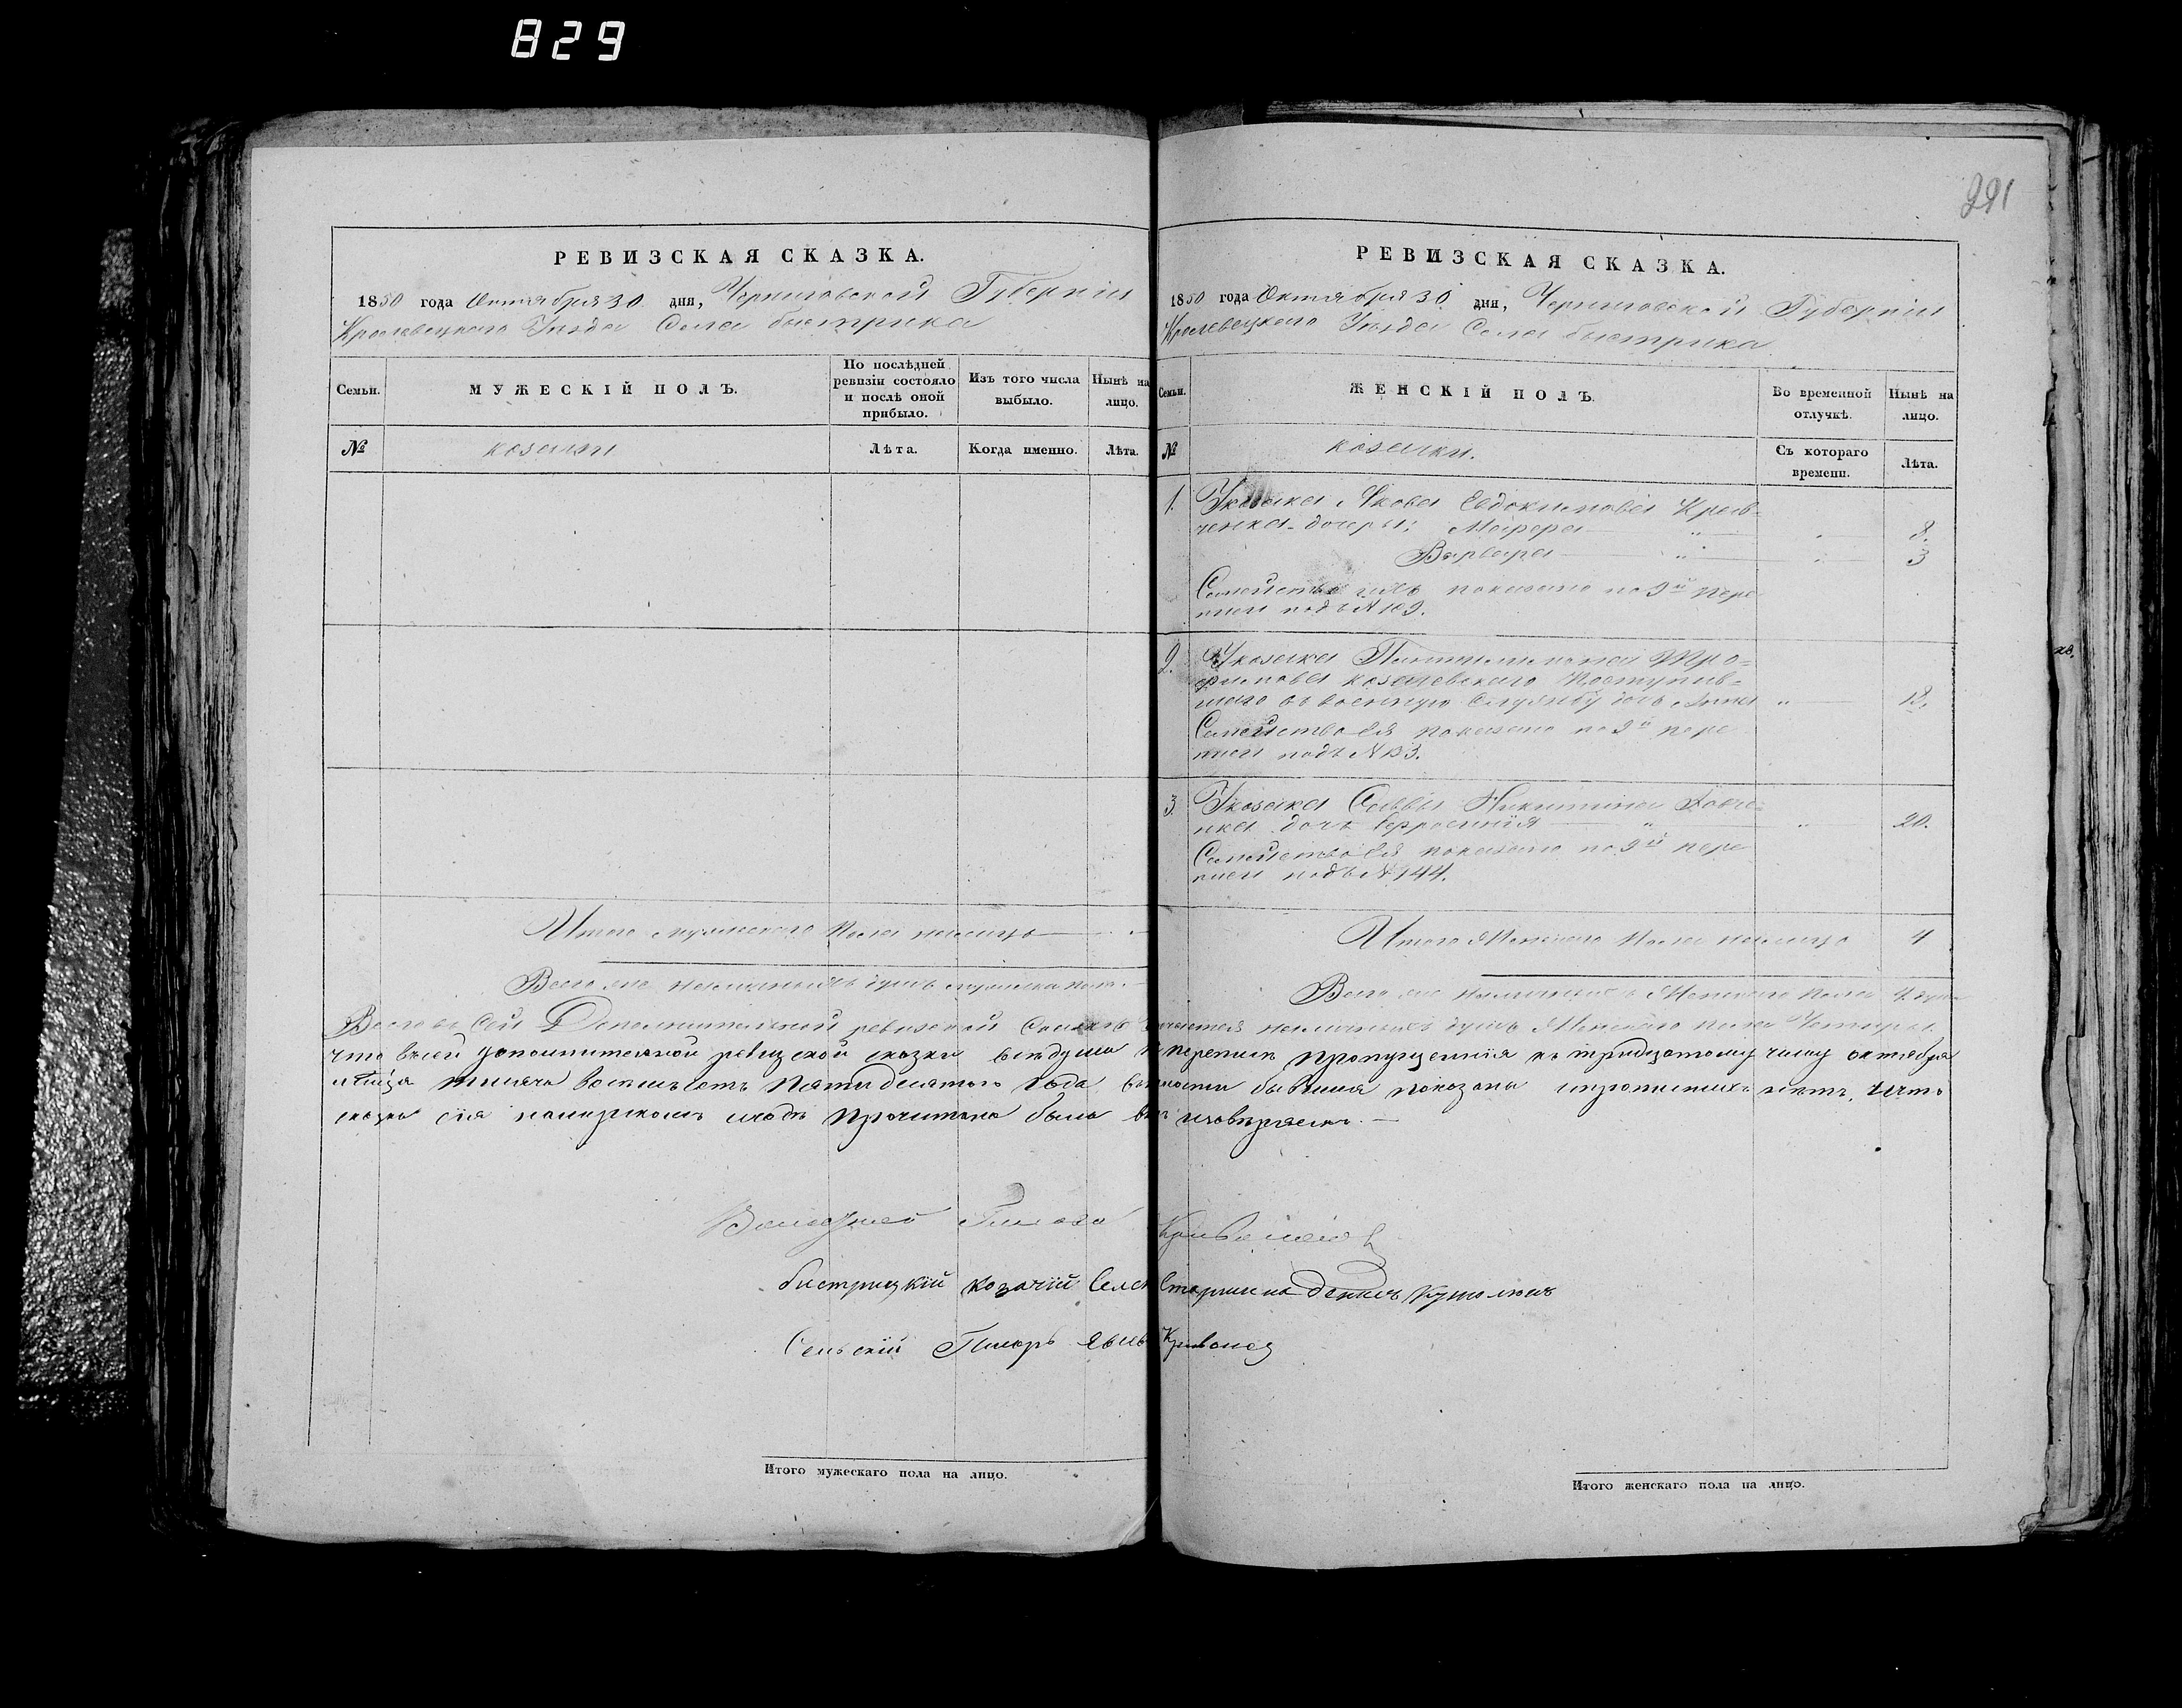 829
291
РЕВИЗСКАЯ СКАЗКА.
1850 года Октября 30 дня, Черниговской Губернiи
Кролевецкаго Уѣзда Села быстрика
Семьи.
МУЖЕСКIЙ ПОЛЪ.
По послѣдней ревизiи состояло и послѣ оной прибыло.
Изъ того числа выбыло.
Нынѣ на лицо.
№
козаки
Лѣта.
Когда именно.
Лѣта.
Итого мужескаго Пола налицо
Всего же наличныхъ душъ мужеска пола
РЕВИЗСКАЯ СКАЗКА.
1850 года Октября 30 дня, Черниговской Губернiи
Кролевецкаго Уѣзда Села быстрика
Семьи.
ЖЕНСКIЙ ПОЛЪ.
Во временной отлучкѣ.
Нынѣ на лицо.
№
козачки.
Съ котораго времени.
Лѣта.
1. Укозака Якова Евдокимова Крав-
ченка дочеры: 8.
Варвара 3
Семейство ихъ показано по 9й пере
писи подъ № 109.
2. Укозака Пантилимона Тро-
фимова козачевскаго Поступив-
шаго въ военную Службу 18.
Семейство Ея показано по 9й пере
писи подъ №
3. Укозака Саввы Никитина
дочь 20.
Семейство Ея показано по 9й пере
писи подъ № 144.
Итого Женскаго Пола налицо 4
Всего же наличныхъ Женскаго Пола 4 душ
Всего въ Сей Дополнительной ревизской Сказкѣ наличныхъ душъ Женскаго пола Четыре.
что въсей дополнительной ревизской сказки всѣ души переписи пропущеннiя къ тридцатому числу октября
мѣсяца тысяча восемьсотъ Пятидесятаго Года бывшiя показаны нѣтъ, что
сказка сiя намирскомъ сходѣ Прочитана была
Голова
быстрицкiй козачiй Старшина
Сельскiй Писарь
Итого мужескаго пола на лицо.
Итого женскаго пола на лицо.